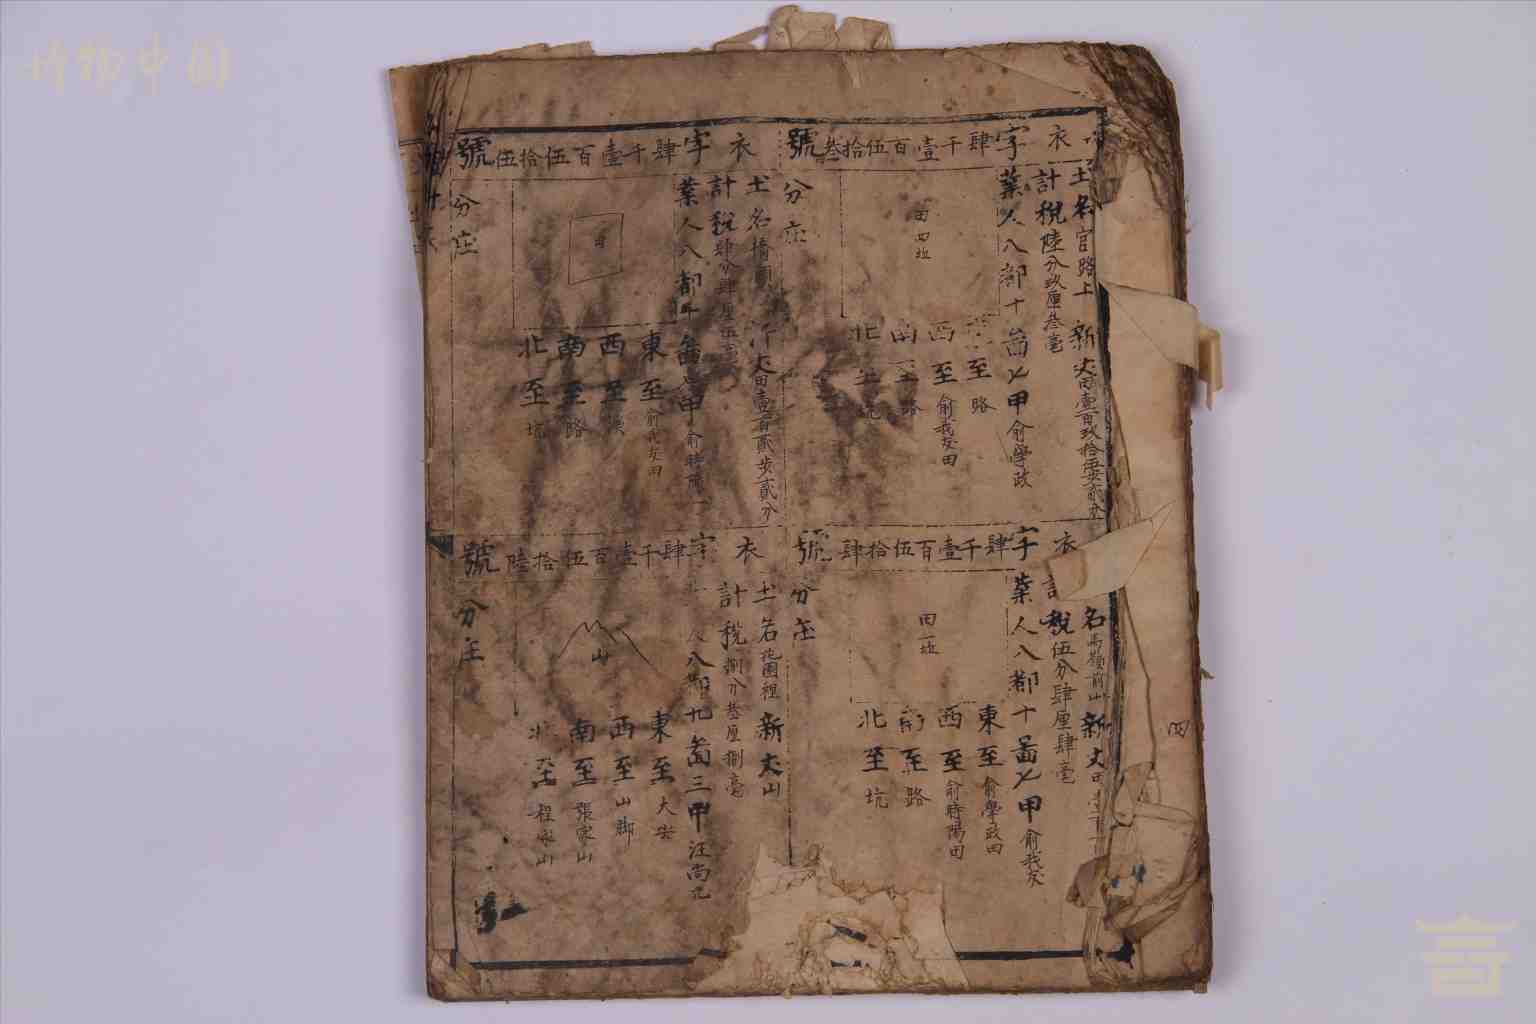 博物中国
衣字肆千壹百伍拾叁號
土名官路上 新丈田壹百玖拾伍步貳分
計稅陸分玖厘叁毫
業人八都十啚七甲俞學政
田四坵
東至路
西至俞我友田
南至路
北至坑
分庄
衣字肆千壹百伍拾肆號
名馬嶺前山 新丈田壹百
計稅伍分肆厘肆毫
業人八都十啚七甲俞我友
田一坵
東至俞學政田
西至俞時陽田
南至路
北至坑
分庄
衣字肆千壹百伍拾伍號
土名橋頭 新丈田壹百貳步貳分
計稅肆分肆厘伍毫
業人八都十啚七甲俞時陽
田
東至俞我友田
西至
南至路
北至坑
分庄
衣字肆千壹百伍拾陸號
土名花園裡 新丈山
計稅捌分叁厘捌毫
人八都九啚三甲汪尚元
山
東至大
西至山脚
南至張家山
北至程家山
分庄
四